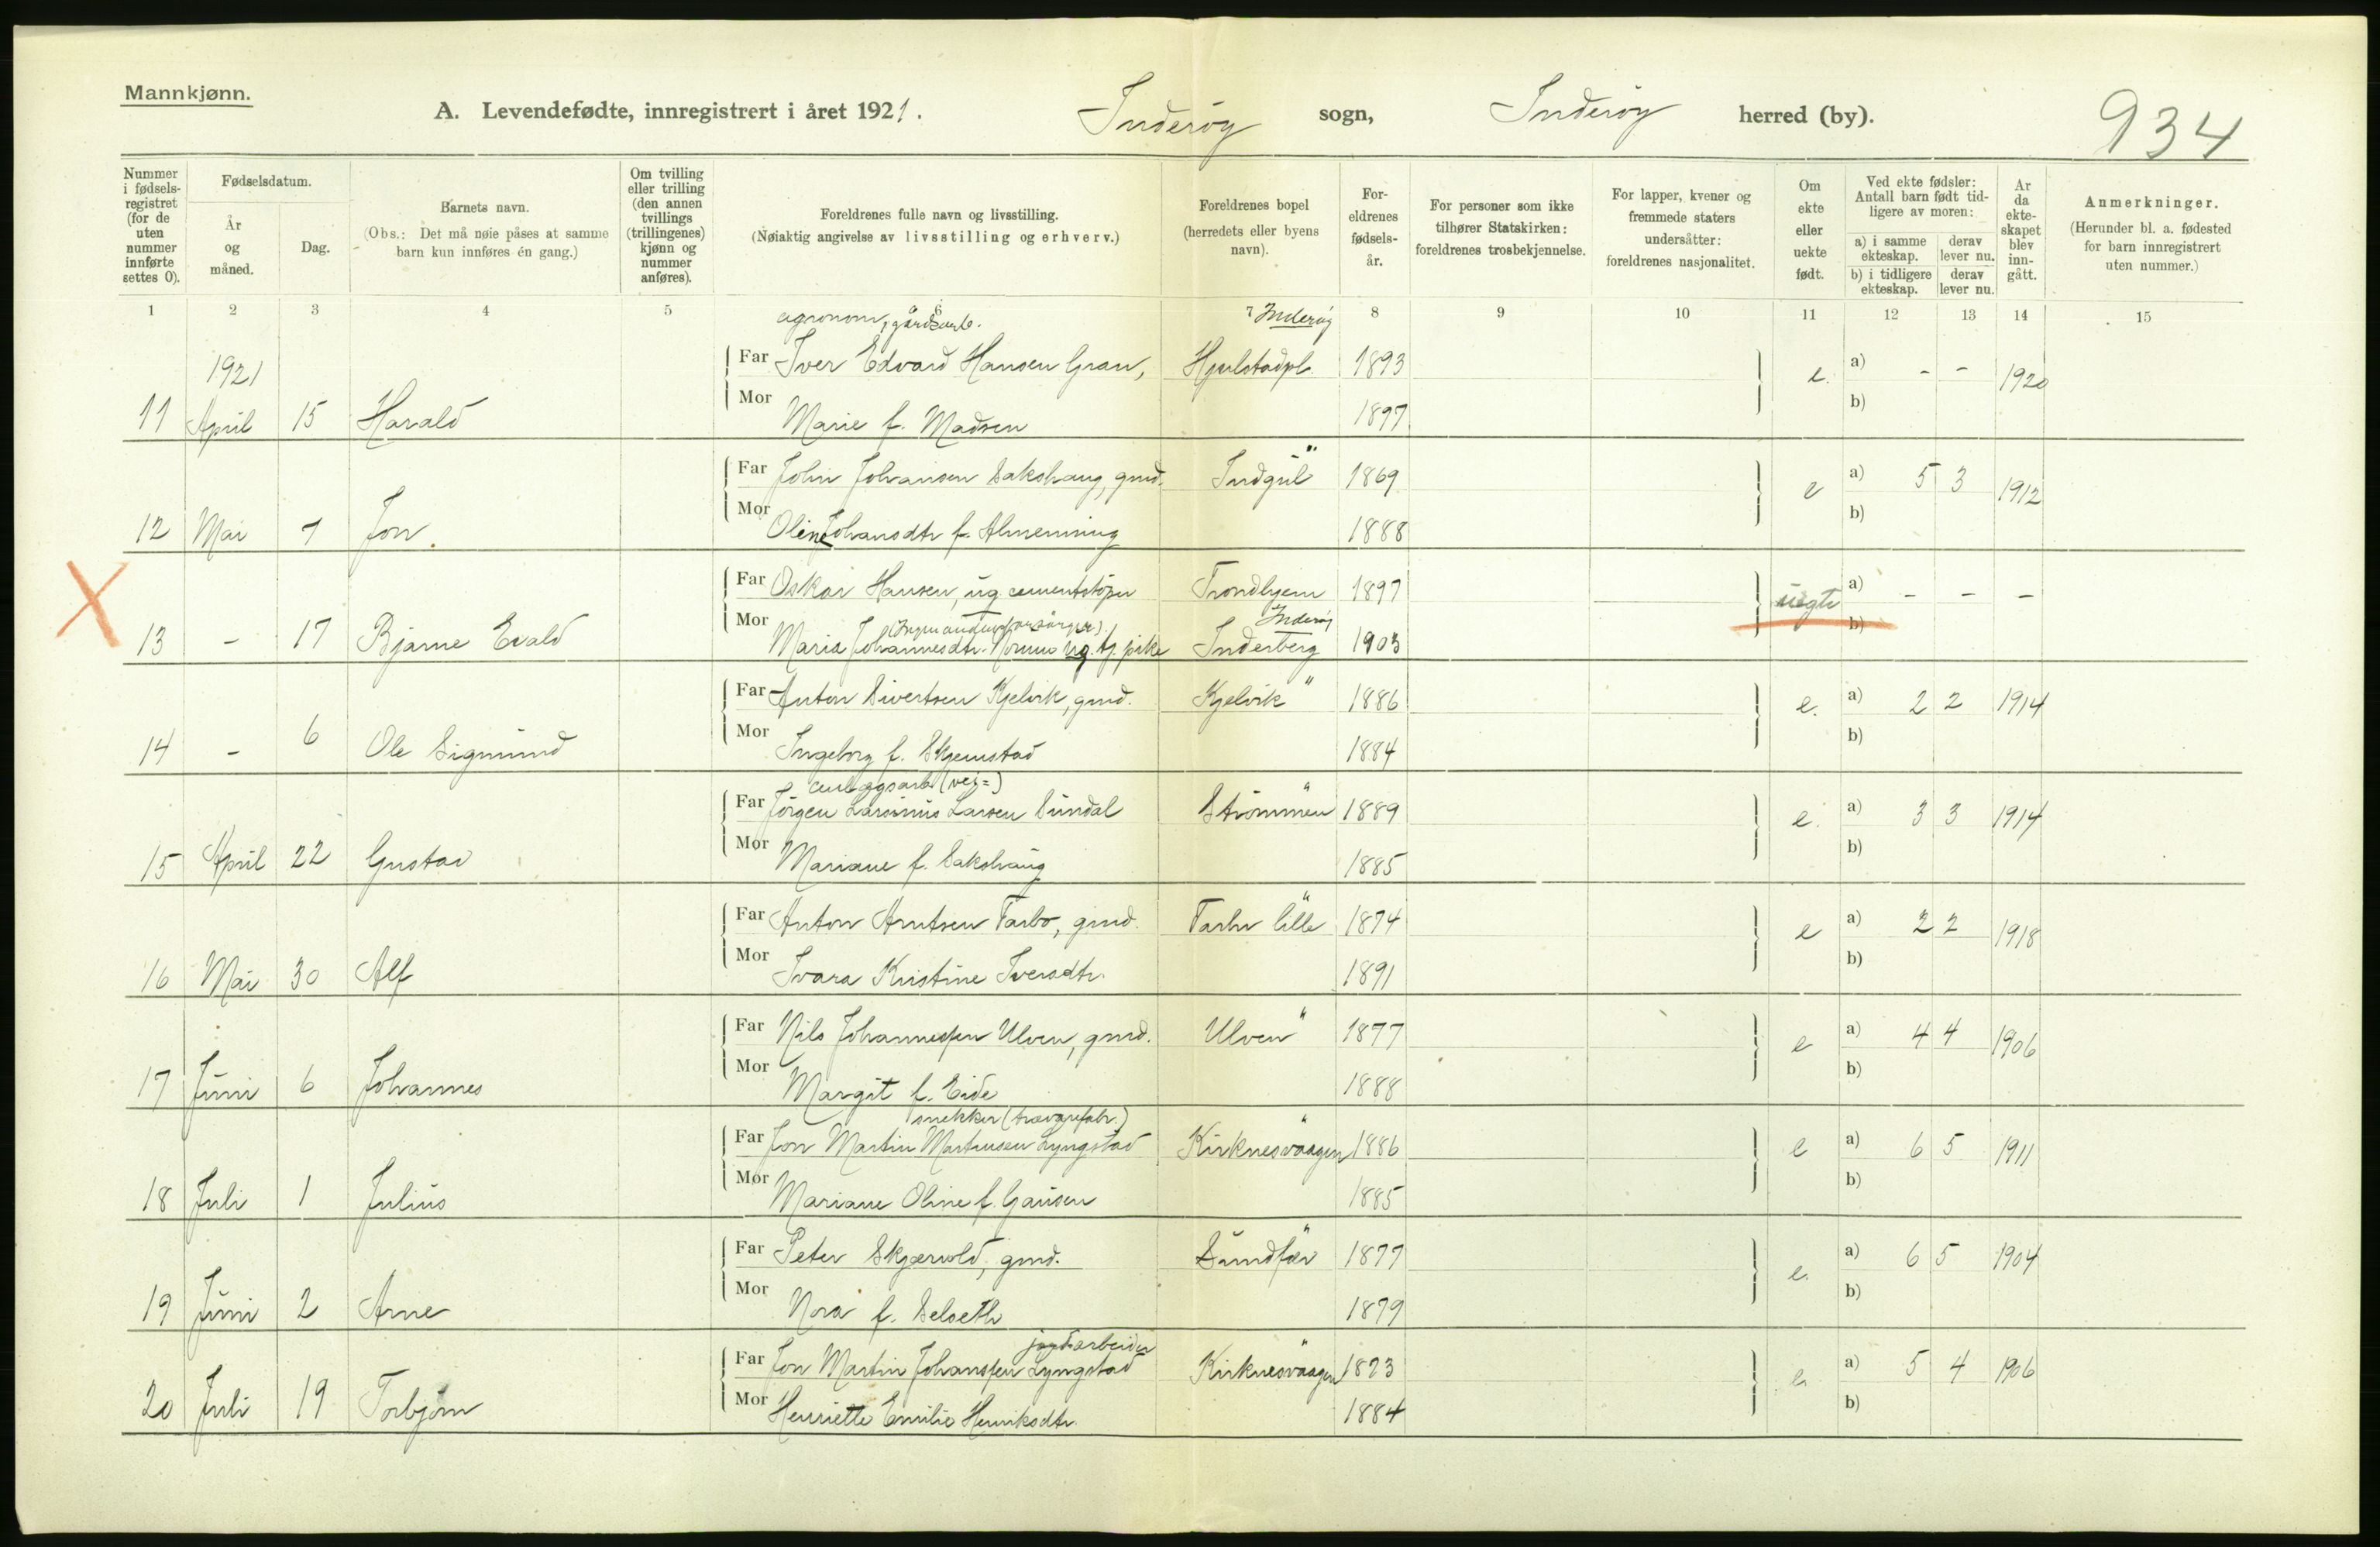 Mannkjønn.
A. Levendefødte, innregistrert i året 1921. Inderøy sogn, Inderøy herred (by). 934
Nummer i fødsels-registret (for de uten nummer innførte settes 0).
Fødselsdatum.
År og måned.
Dag.
Barnets navn.
(Obs.: Det må nøie påses at samme barn kun innføres én gang.)
Om tvilling eller trilling (den annen tvillings (trillingenes) kjønn og nummer anføres).
Foreldrenes fulle navn og livsstilling.
(Nøiaktig angivelse av livsstilling og erhverv.)
Foreldrenes bopel (herredets eller byens navn).
For-eldrenes fødsels-år.
For personer som ikke tilhører Statskirken: foreldrenes trosbekjennelse.
For lapper, kvener og fremmede staters undersåtter: foreldrenes nasjonalitet.
Om ekte eller uekte født.
Ved ekte fødsler: Antall barn født tid-ligere av moren:
a) i samme ekteskap. derav lever nu.
b) i tidligere ekteskap. derav lever nu.
Ar da ekte-skapet blev inn-gått.
Anmerkninger.
(Herunder bl. a. fødested for barn innregistrert uten nummer.)
1 2 3 4 5 6 7 8 9 10 11 12 13 14 15
agronom, gårdsarb. Inderøy
1921 Far Iver Edvard Hansen Gran, Hjulstadpl. 1893 e. a) - - 1920
11 April 15 Harald Mor Marie f. Madsen 1897 b)
Far John Johansen Sakshaug, gmd. " 1869 e a) 5 3 1912
12 Mai 7 Jon. Mor Oline Johansdtr f. Almenning 1888 b)
Far Oskar Hansen, ug. cementstøper Trondhjem 1897 uegte a) - - -
Inderøy
13 - 17 Bjarne Evald Mor Maria Johannesdtr. ug. tj. pike Inderberg 1903 b)
Far Anton Sivertsen Kjelvik, gmd. Kjelvik " 1886 e. a) 2 2 1914
14 - 6 Ole Sigmund Mor Ingeborg f. Skjemstad 1884 b)
anlægsarb (vej=)
Far Jörgen Larsinus Larsen Sundal Strömmen " 1889 e. a) 3 3 1914
15 April 22 Gustav Mor Mariane f. Sakshaug 1885 b)
Far Anton Arntsen Tarbo, gmd. Tarbo lille " 1874 e a) 2 2 1918
16 Mai 30 Alf Mor Ivara Kristine Iversdtr. 1891 b)
Far Nils Johannessen Ulven, gmd. Ulven " 1877 e a) 4 4 1906
17 Juni 6 Johannes Mor Margit f. Eide 1888 b)
snekker (trævarefabr.)
Far Jon Martin Martinsen Lyngstad Kirknesvaagen " 1886 e a) 6 5 1911
18 Juli 1 Julius Mor Mariane Oline f. Gausen 1885 b)
Far Peter Skjervold, gmd. Sundfær " 1877 e. a) 6 5 1904
19 Juni 2 Arne Mor Nora f. Selseth 1879 b)
jordarbeider
Far Jon Martin Johanssen Lyngstad Kirknesvaagen " 1873 e. a) 5 4 1906
20 Juli 19 Torbjörn Mor Henriette Emilie Henriksdtr 1884 b)